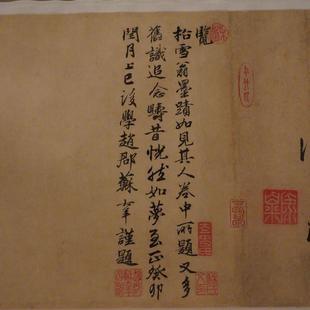 覽
松雪翁墨蹟如見其人卷中所題又多
舊識追念疇昔恍然如夢至正癸卯
閏月上巳後學趙郡蘇
謹題